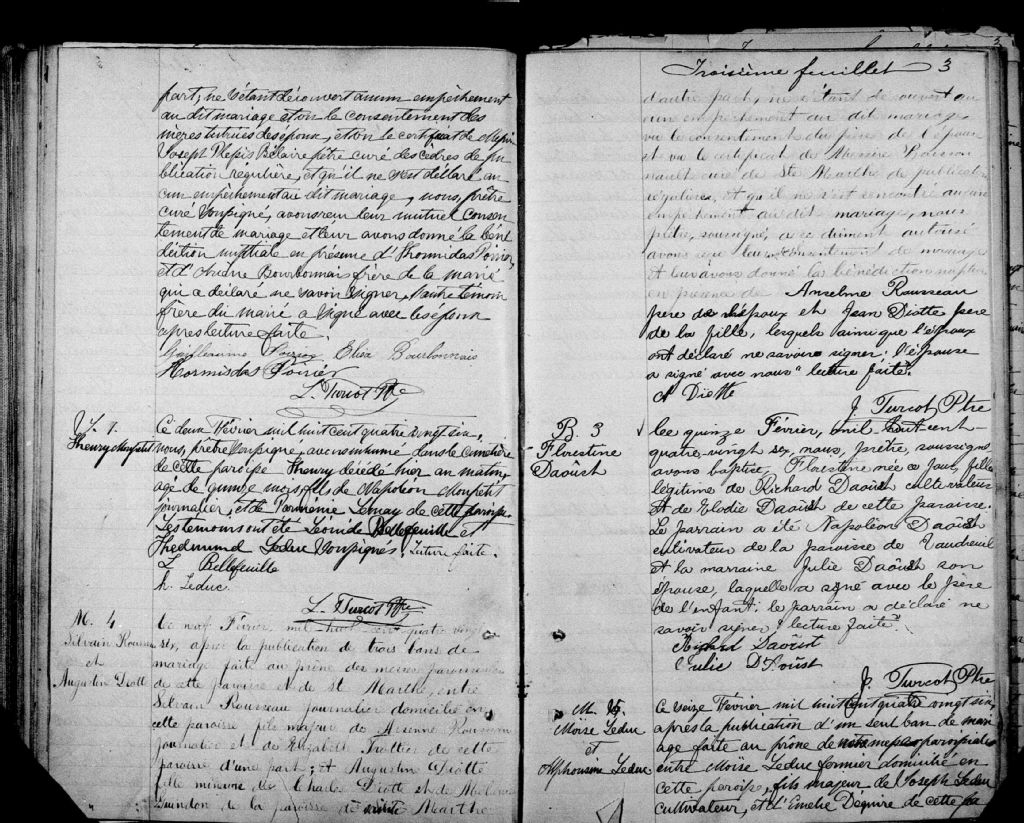 part, ne s'étant découvert aucun empêchement
au dit mariage et on le consentement des
mères tutrices des époux, et on le certificat de Messire
Joseph Plessis Bélaire ptre curé des Cèdres de pu
blication régulière, et qu'il ne s'est déclaré au
cun empêchement au dit mariage, nous, prêtre
curé soussigné, avons reçu leur mutuel consen
tement de mariage et leur avons donné la béné
diction nuptiale en présence d'Hormidas Poirier,
et d'André Bourbonnais frère de la mariée
qui a déclaré ne savoir signer, l'autre témoin
frère du marié a signé avec les époux
après lecture faite.
Guillaume Poirier Eliza Bourbonnais
Hormisdas Poirier
L. Turcot Ptre
S. 1.
Henry Monpetit
Ce deux Février mil huit cent quatre vingt six,
nous, prêtre soussigné, avons inhumé dans le cimetière
de cette paroisse Henry décédé hier au matin
agé de quinze mois, fils de Napoléon Monpetit
journalier, et de Lemay de cette paroisse
Les témoins ont été Léonide Bellefeuille et
Thedmund Leduc soussignés, lecture faite.
L Bellefeuille
Leduc
L. Turcot Ptre
M. 4.
Silvain Rousseau
et
Augustin Diotte
Le neuf Février mil huit cent quatre vingt
six, après la publication de trois bans de
mariage faite au prône des messes paroissiales
de cette paroisse et de Ste Marthe, entre
Silvain Rousseau journalier domicilié en
cette paroisse fils majeur de Arsenne Rousseau
journalier et de Elizabeth Trottier de cette
paroisse d'une part; et Augustin Diotte
fille mineure de Charles Diotte et de
Guindon de la paroisse de Sainte Marthe
Troisième feuillet 3
d'autre part, ne s'étant découvert au
cun empêchement au dit mariage
vu le consentement du père de l'épouse
et vu le certificat de Messire
curé de Ste Marthe de publication
régulière, et qu'il ne s'est rencontré aucun
empêchement au dit mariage, nous
prêtre, soussigné, avec dument autorisé
avons reçu leur consentement de mariage
et leur avons donné la bénédiction nuptiale
en présence de Anselme Rousseau
père de l'époux et Jean Diotte père
de la fille, lesquels ainsi que l'époux
ont déclaré ne savoir signer; l'épouse
a signé avec nous lecture faite.
A Diotte
J. Turcot, Ptre
B. 3
Florestine
Daôust
Lee quinze Février, mil huit cent
quatre-vingt six, nous, prêtre, soussigné
avons baptisé, Florestine née ce jour, fille
légitime de Richard Daoust cultivateur
et de Elodie Daoust de cette paroisse.
Le parrain a été Napoléon Daoust
cultivateur de la paroisse de Vaudreuil
et la marraine Julie Daoust son
épouse, laquelle a signé avec le père
de l'enfant; le parrain a déclaré ne
savoir signer lecture faite.
Richard Daoust
Julie D'Aoust
J. Turcot Ptre
M. 5
Moïse Leduc
et
Alphonsine Leduc
Ce seize Février mil huit cent quatre vingt six,
après la publication d'un seul ban de mari
age faite au prône de notre messe paroissiale
entre Moïse Leduc fermier domicilié en
cette paroisse, fils majeur de Joseph Leduc
cultivateur, et d'Emelie Déquire de cette pa